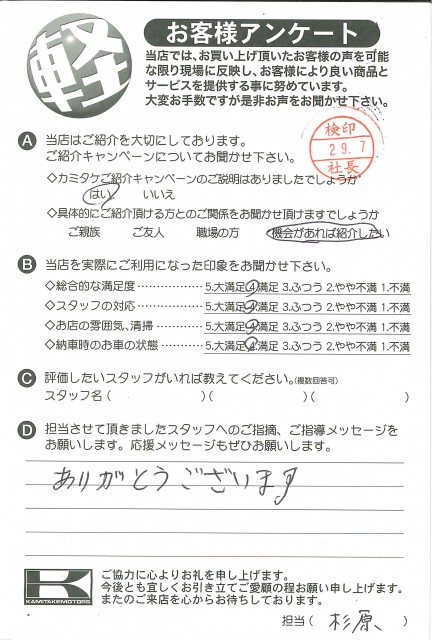 軽
お客様アンケート
当店では、お買い上げ頂いたお客様の声を可能
な限り現場に反映し、お客様により良い商品と
サービスを提供する事に努めています。
大変お手数ですが是非お声をお聞かせ下さい。
検印
29.7
社長
A 当店はご紹介を大切にしております。
ご紹介キャンペーンについてお聞かせ下さい。
◇カミタケご紹介キャンペーンのご説明はありましたでしょうか
はい いいえ
◇具体的にご紹介頂ける方とのご関係をお聞かせ頂けますでしょうか
ご親族 ご友人 職場の方 機会があれば紹介したい
B 当店を実際にご利用になった印象をお聞かせ下さい。
◇総合的な満足度………………5.大満足 4.満足 3.ふつう 2.やや不満 1.不満
◇スタッフの対応………………5.大満足 4.満足 3.ふつう 2.やや不満 1.不満
◇お店の雰囲気、清掃…………5.大満足 4.満足 3.ふつう 2.やや不満 1.不満
◇納車時のお車の状態…………5.大満足 4.満足 3.ふつう 2.やや不満 1.不満
C 評価したいスタッフがいれば教えてください。(複数回答可)
スタッフ名( )( )( )
D 担当させて頂きましたスタッフへのご指摘、ご指導メッセージを
お願いします。応援メッセージもぜひお願いします。
ありがとうございます
K
KAMITAKE MOTORS
ご協力に心よりお礼を申し上げます。
今後とも宜しくお引き立てご愛顧の程お願い申し上げます。
またのご来店を心からお待ちしております。
担当( 杉原 )